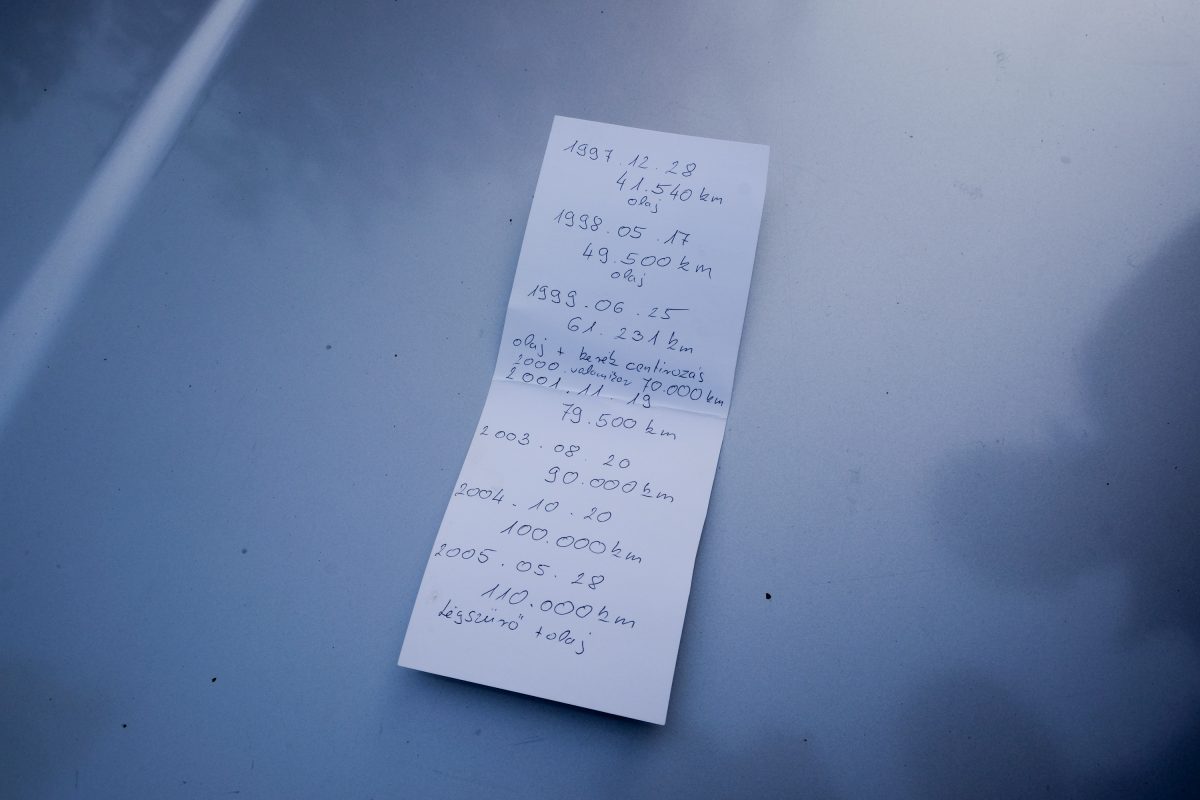 1997.12.28
41.540 km
olaj
1998.05.17
49.500 km
olaj
1999.06.25
61.231 km
olaj + kerék centirozás
2000 valamikor 70.000 km
2001.11.19
79.500 km
2003.08.20
90.000 km
2004.10.20
100.000 km
2005.05.28
110.000 km
Légszűrő + olaj